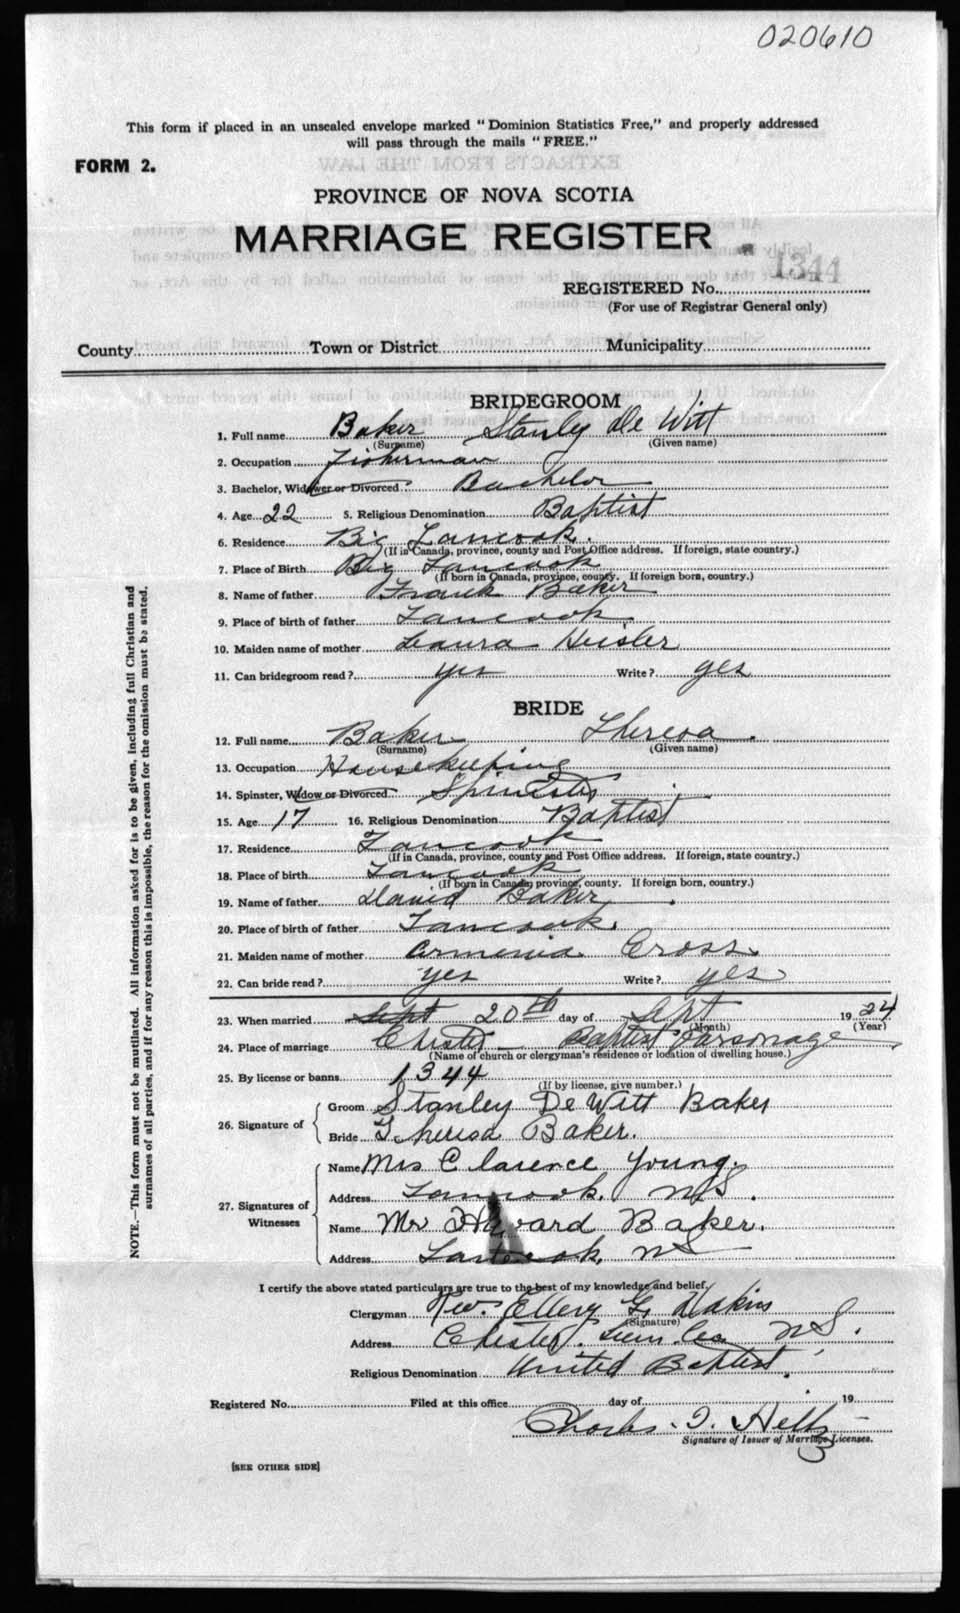 020610
This form if placed in an unsealed envelope marked "Dominion Statistics Free," and properly addressed
will pass through the mails "FREE."
FORM 2.
PROVINCE OF NOVA SCOTIA
MARRIAGE REGISTER
1344
REGISTERED No.
(For use of Registrar General only)
County Town or District Municipality
BRIDEGROOM
1. Full name Baker Stanley De Witt
(Surname) (Given name)
2. Occupation Fisherman
3. Bachelor, Widower or Divorced Bachelor
4. Age 22 5. Religious Denomination Baptist
6. Residence Big Tancook.
(If in Canada, province, county and Post Office address. If foreign, state country.)
7. Place of Birth Big Tancook
(If born in Canada, province, county. If foreign born, country.)
8. Name of father Frank Baker
9. Place of birth of father Tancook
10. Maiden name of mother Laura Heisler
11. Can bridegroom read? yes Write? yes
BRIDE
12. Full name Baker Theresa.
(Surname) (Given name)
13. Occupation Housekeeping
14. Spinster, Widow or Divorced Spinster
15. Age 17 16. Religious Denomination Baptist
17. Residence Tancook
(If in Canada, province, county and Post Office address. If foreign, state country.)
18. Place of birth Tancook
(If born in Canada, province, county. If foreign born, country.)
19. Name of father David Baker
20. Place of birth of father Tancook.
21. Maiden name of mother Armenia Cross.
22. Can bride read? yes Write? yes
23. When married Sept 20th day of Sept 1924
(Month) (Year)
24. Place of marriage Chester - Baptist Parsonage
(Name of church or clergyman's residence or location of dwelling house.)
25. By license or banns 1344
(If by license, give number.)
26. Signature of Groom Stanley De Witt Baker
Bride Theresa Baker.
27. Signatures of Witnesses Name Mrs Clarence Young.
Address Tancook, N.S.
Name Mr Howard Baker.
Address Tancook, NS
I certify the above stated particulars are true to the best of my knowledge and belief,
Clergyman Rev. Ellery G. Dakins
(Signature)
Address Chester, Lun. Co. N.S.
Religious Denomination United Baptist.
Registered No. Filed at this office day of 19
Charles
Signature of Issuer of Marriage Licenses.
[SEE OTHER SIDE]
NOTE.—This form must not be mutilated. All information asked for is to be given, including full Christian and
surnames of all parties, and if for any reason this is impossible, the reason for the omission must be stated.